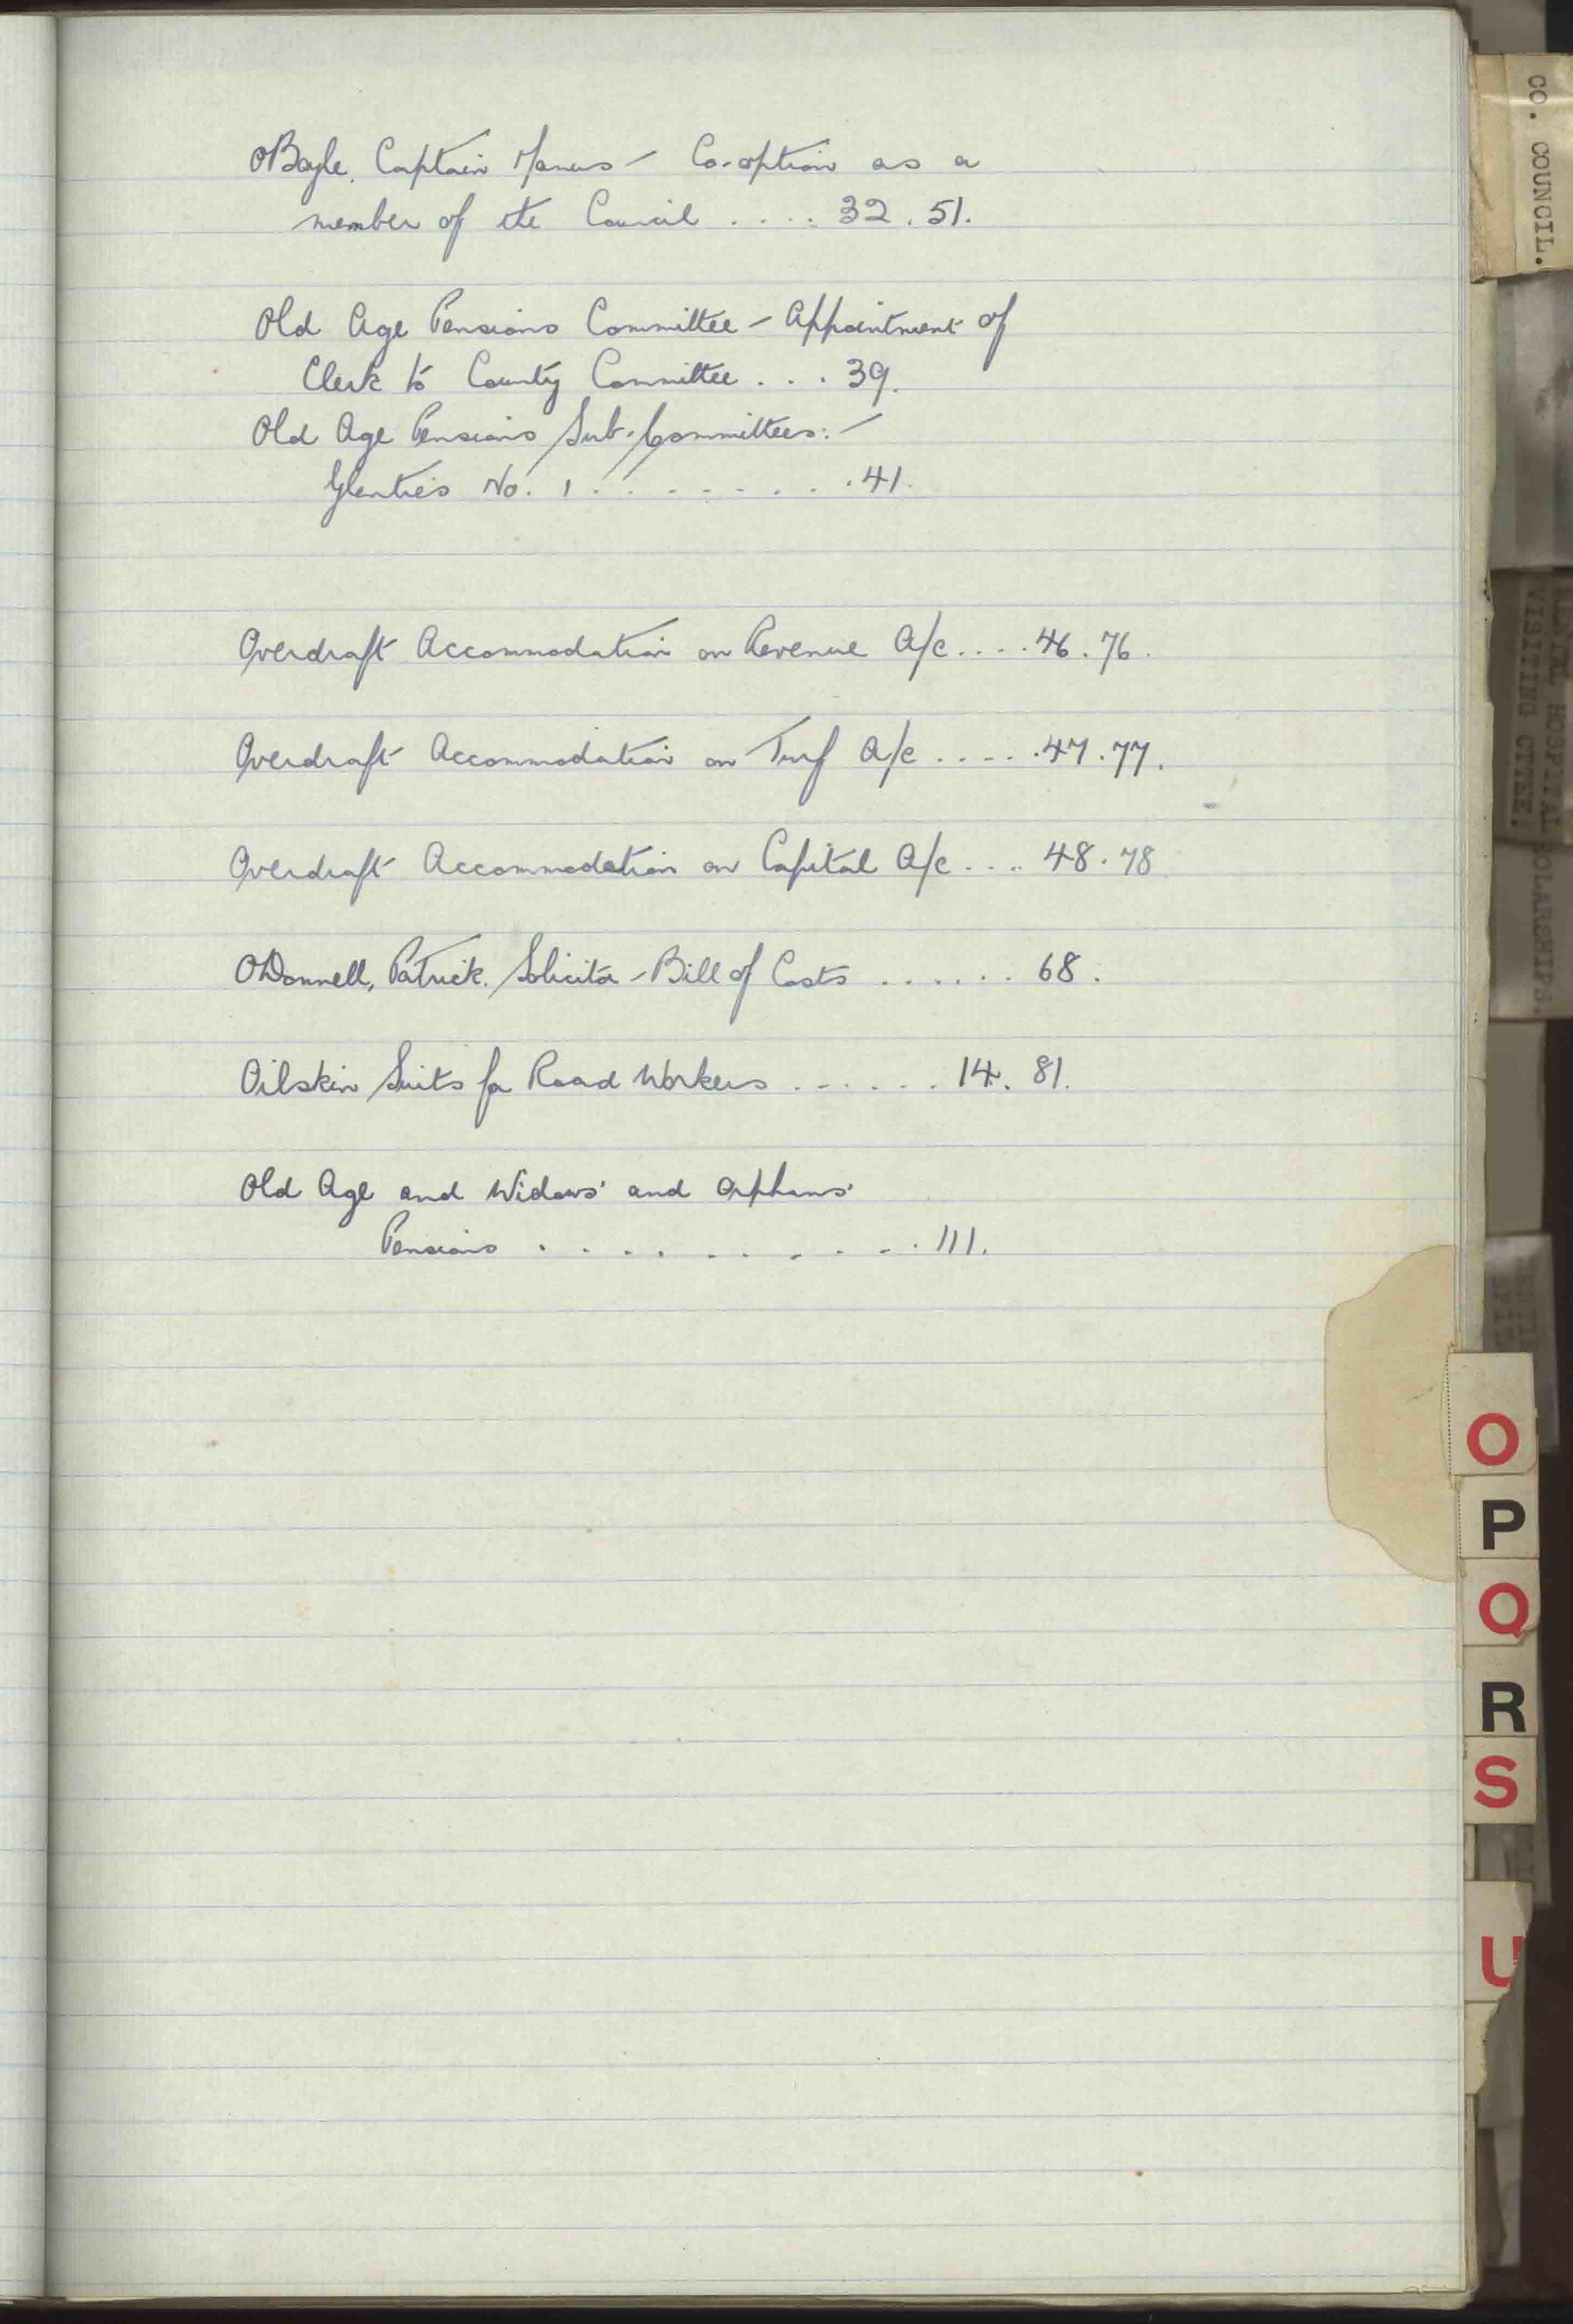 OBoyle, Captain Manus - Co-option as a
member of the Council .... 32. 51.
Old Age Pensions Committee - Appointment of
Clerk to County Committee ... 39.
Old Age Pensions Sub-Committees:-
Glenties No. 1 ......... 41.
Overdraft Accommodation on Revenue A/c .... 46. 76.
Overdraft Accommodation on Turf A/c ..... 47. 77.
Overdraft Accommodation on Capital A/c .... 48. 78
O'Donnell, Patrick. Solicitor - Bill of Costs ...... 68.
Oilskin Suits for Road Workers ...... 14. 81.
Old Age and Widows' and Orphans'
Pensions .......... 111.
CO. COUNCIL.
HOSPITAL
VISITING CTTEE.
O
P
Q
R
S
U